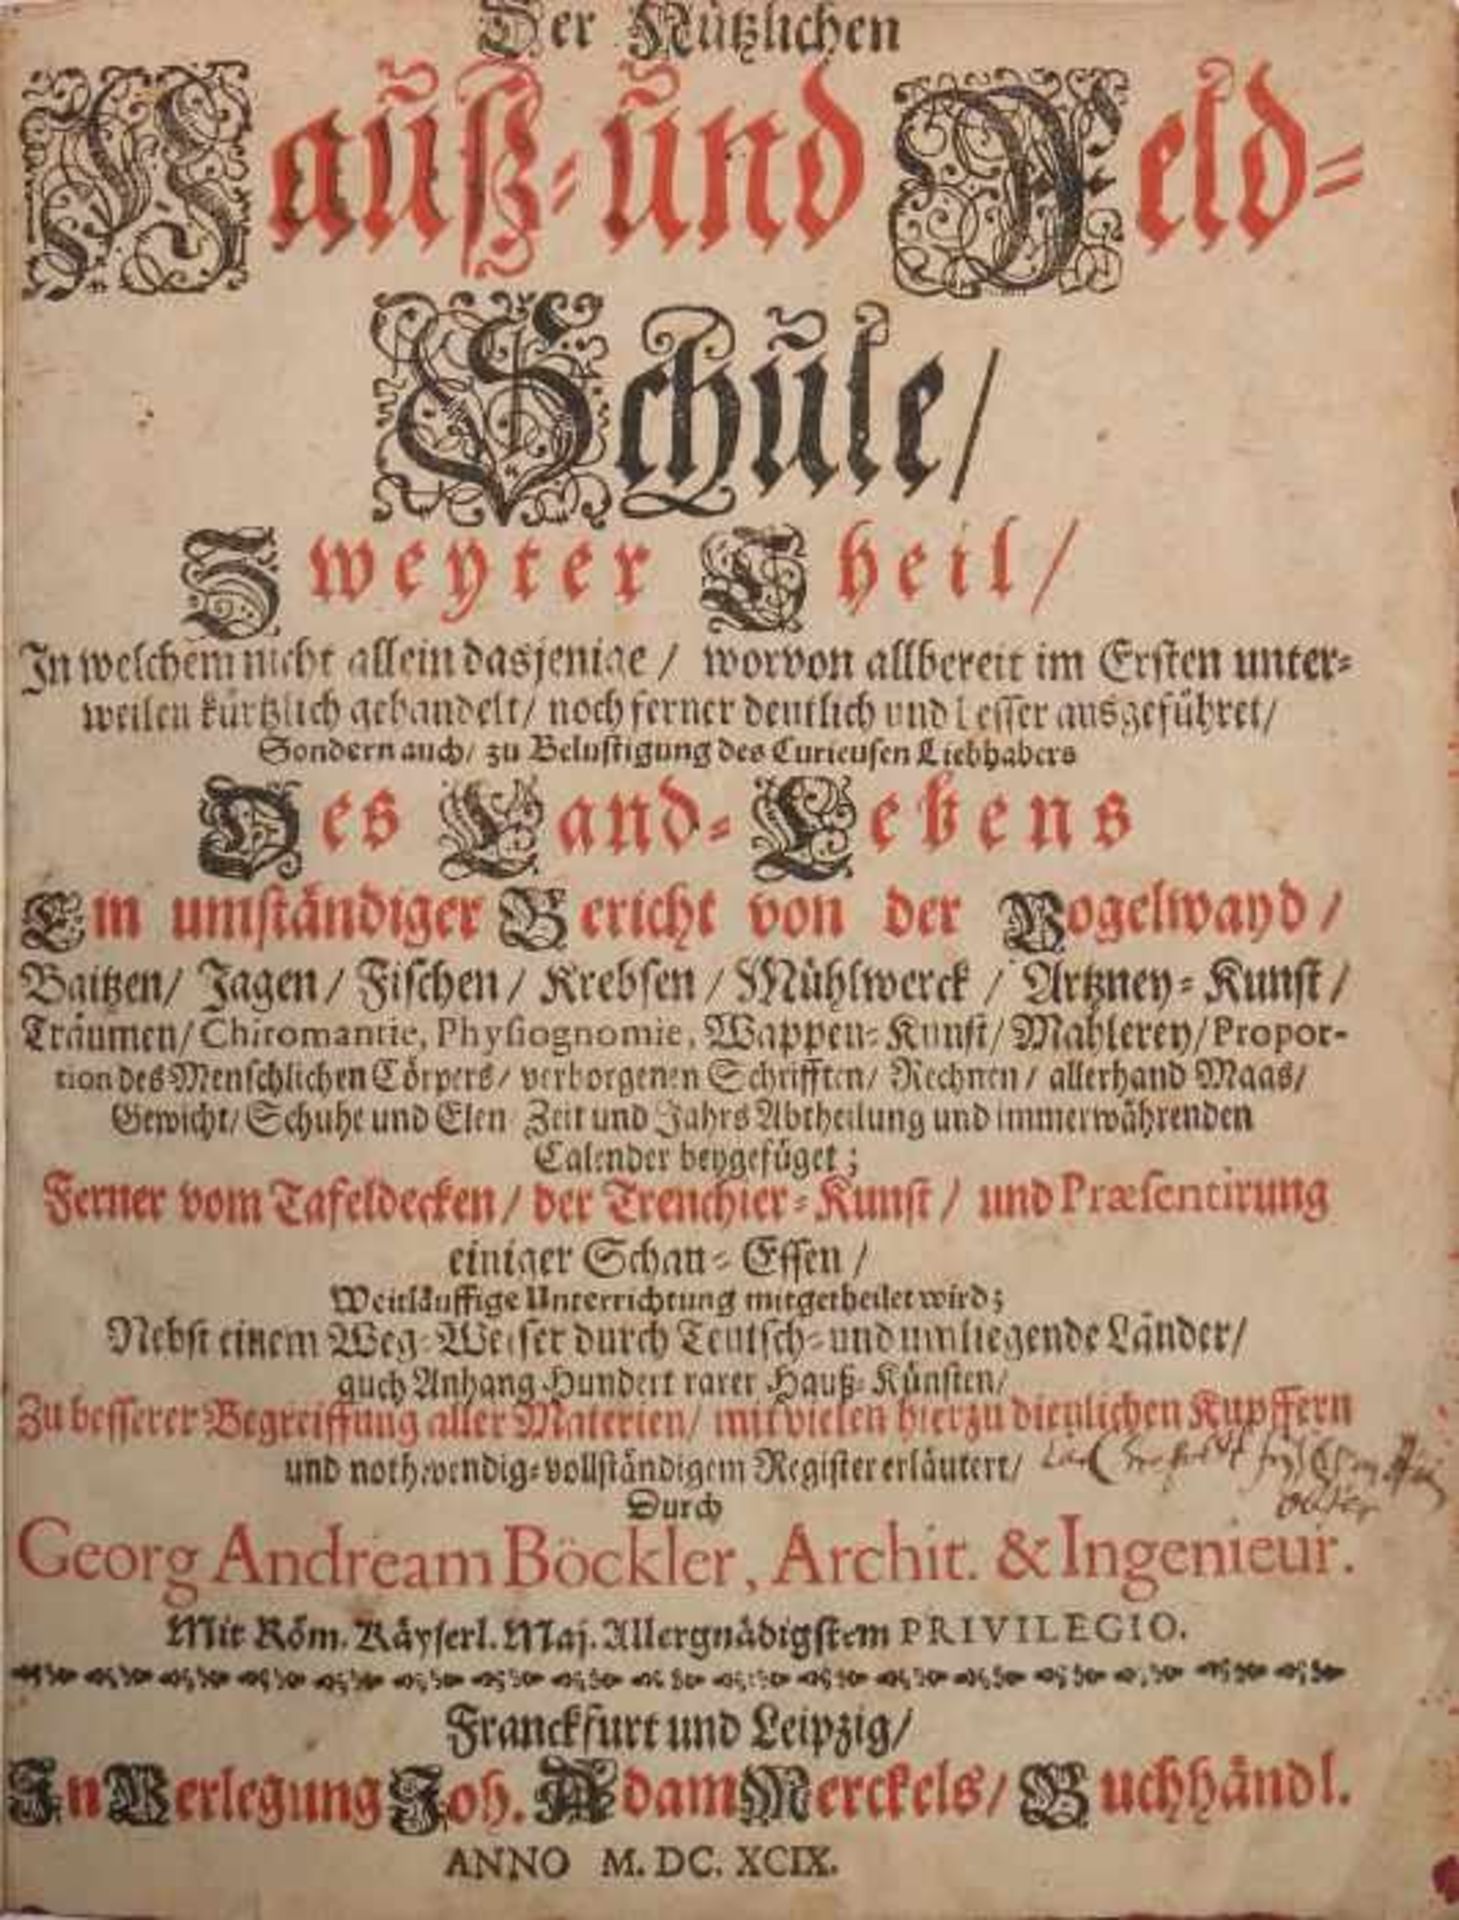 Der Nützlichen
Hauß- und Feld-
Schule/
Zweyter Theil/
In welchem nicht allein dasjenige / worvon allbereit im Ersten unter-
weilen kürtzlich gehandelt/ noch ferner deutlich und besser ausgeführet/
Sondern auch/ zu Belustigung des Curieusen Liebhabers
Des Land-Lebens
Ein umständiger Bericht von der Vogelwayd /
Baitzen/ Jagen / Fischen / Krebsen / Mühlwerck / Artzney-Kunst /
Träumen/ Chiromantie, Physiognomie, Wappen-Kunst/ Mahlerey/ Propor-
tion des Menschlichen Cörpers/ verborgenen Schrifften/ Rechnen / allerhand Maas/
Gewicht/ Schuhe und Elen Zeit und Jahrs Abtheilung und immerwährenden
Calender beygefüget ;
Ferner vom Tafeldecken / der Trenchier-Kunst / und Præsentirung
einiger Schau-Essen /
Weitläuffige Unterrichtung mitgetheilet wird ;
Nebst einem Weg-Weiser durch Teutsch- und umliegende Länder/
auch Anhang Hundert rarer Hauß-Künsten/
Zu besserer Begreiffung aller Materien/ mit vielen hierzu dienlichen Kupffern
und nothwendig-vollständigem Register erläutert/
Durch
Georg Andream Böckler, Archit. & Ingenieur.
Mit Röm. Käyserl. Maj. Allergnädigstem PRIVILEGIO.
Franckfurt und Leipzig/
In Verlegung Joh. Adam Merckels/ Buchhändl.
ANNO M. DC. XCIX.